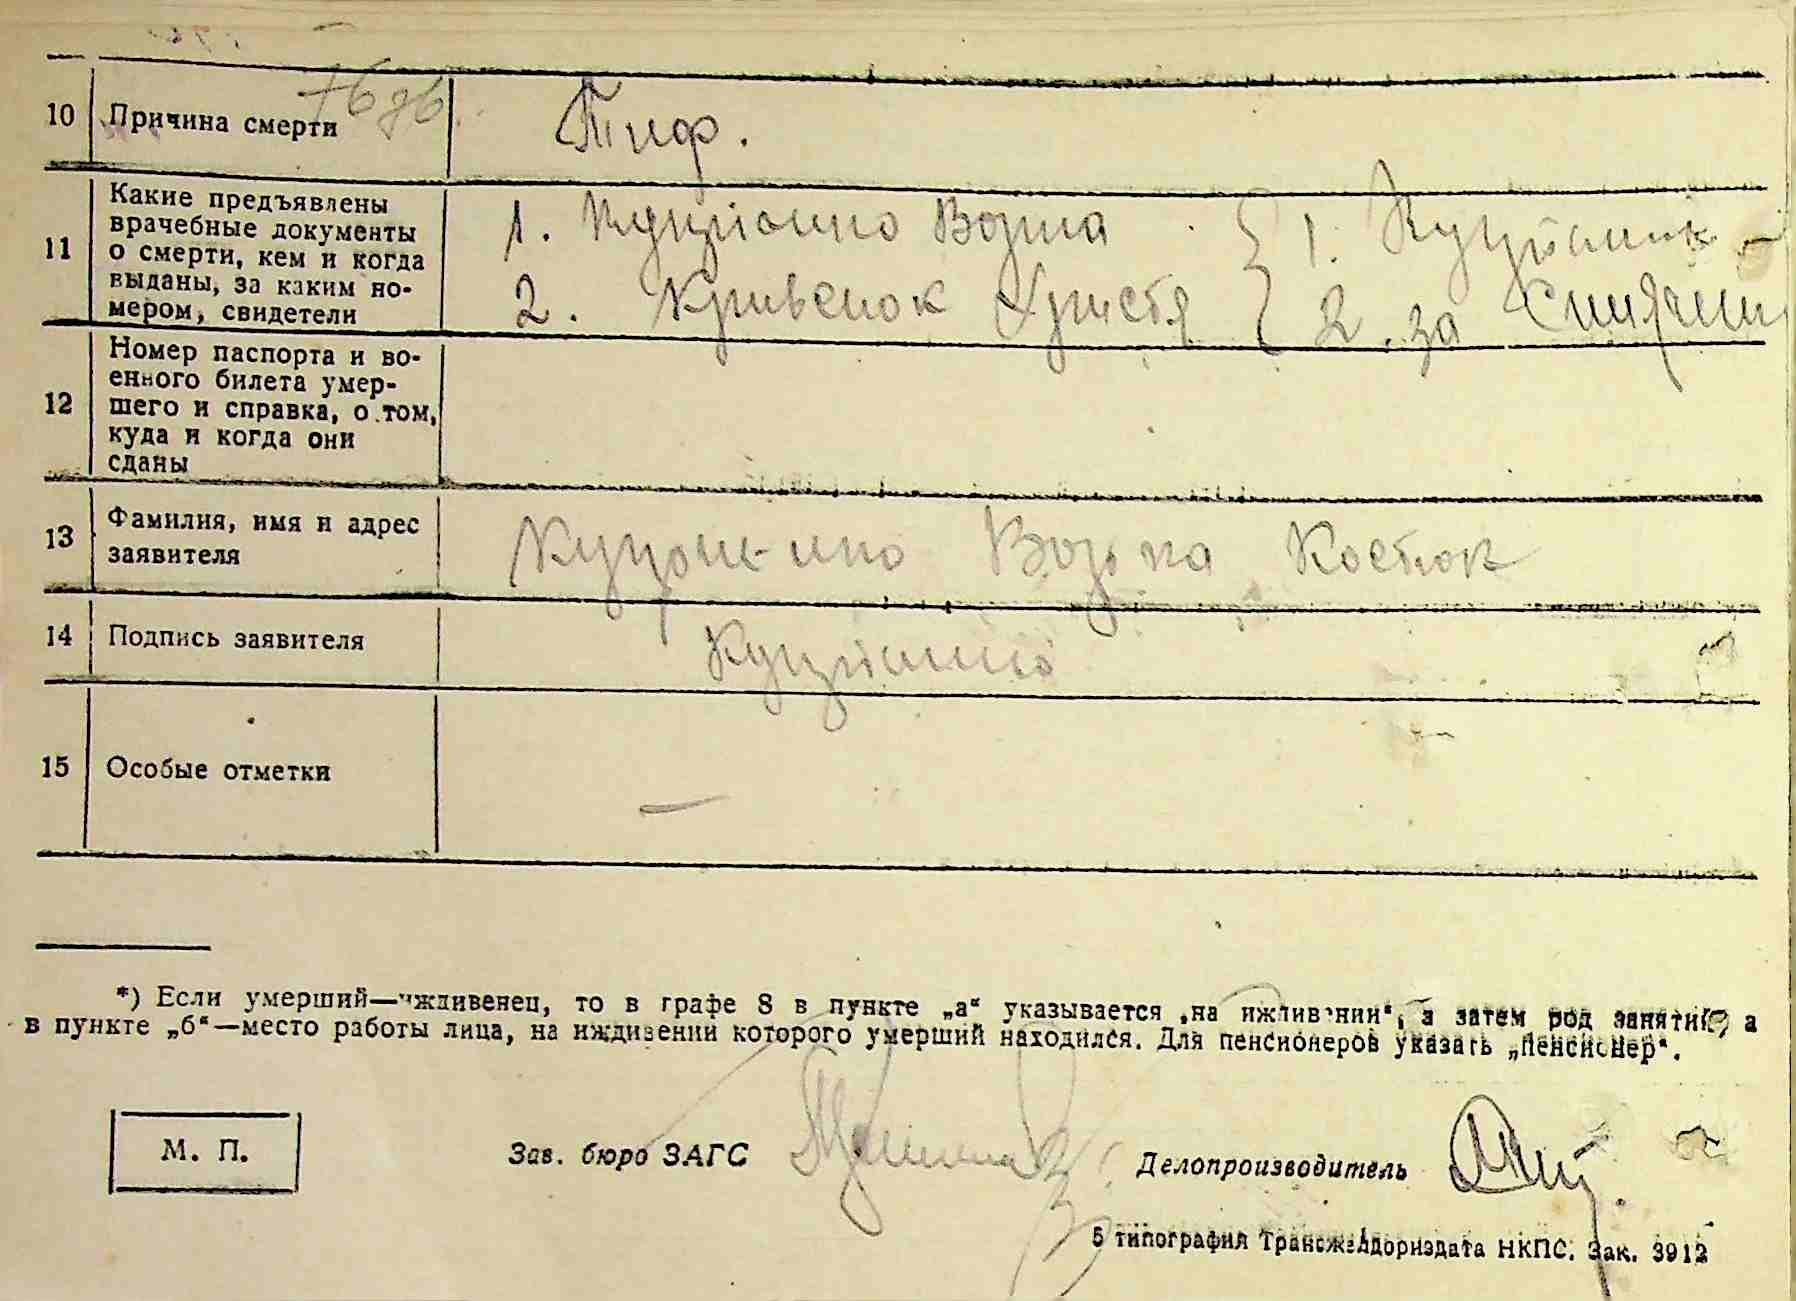 10 Причина смерти Тиф.
11 Какие предъявлены
врачебные документы
о смерти, кем и когда
выданы, за каким но-
мером, свидетели
1.
2. Кривенок Христя 2. за
12 Номер паспорта и во-
енного билета умер-
шего и справка, о том,
куда и когда они
сданы
13 Фамилия, имя и адрес
заявителя
Костюк
14 Подпись заявителя
15 Особые отметки
—
*) Если умерший—иждивенец, то в графе 8 в пункте „а“ указывается „на иждивении“, а затем род занятий, а
в пункте „б“—место работы лица, на иждивении которого умерший находился. Для пенсионеров указать „пенсионер“.
М. П.
Зав. бюро ЗАГС
Делопроизводитель
5 типография Трансжелдориздата НКПС. Зак. 3912